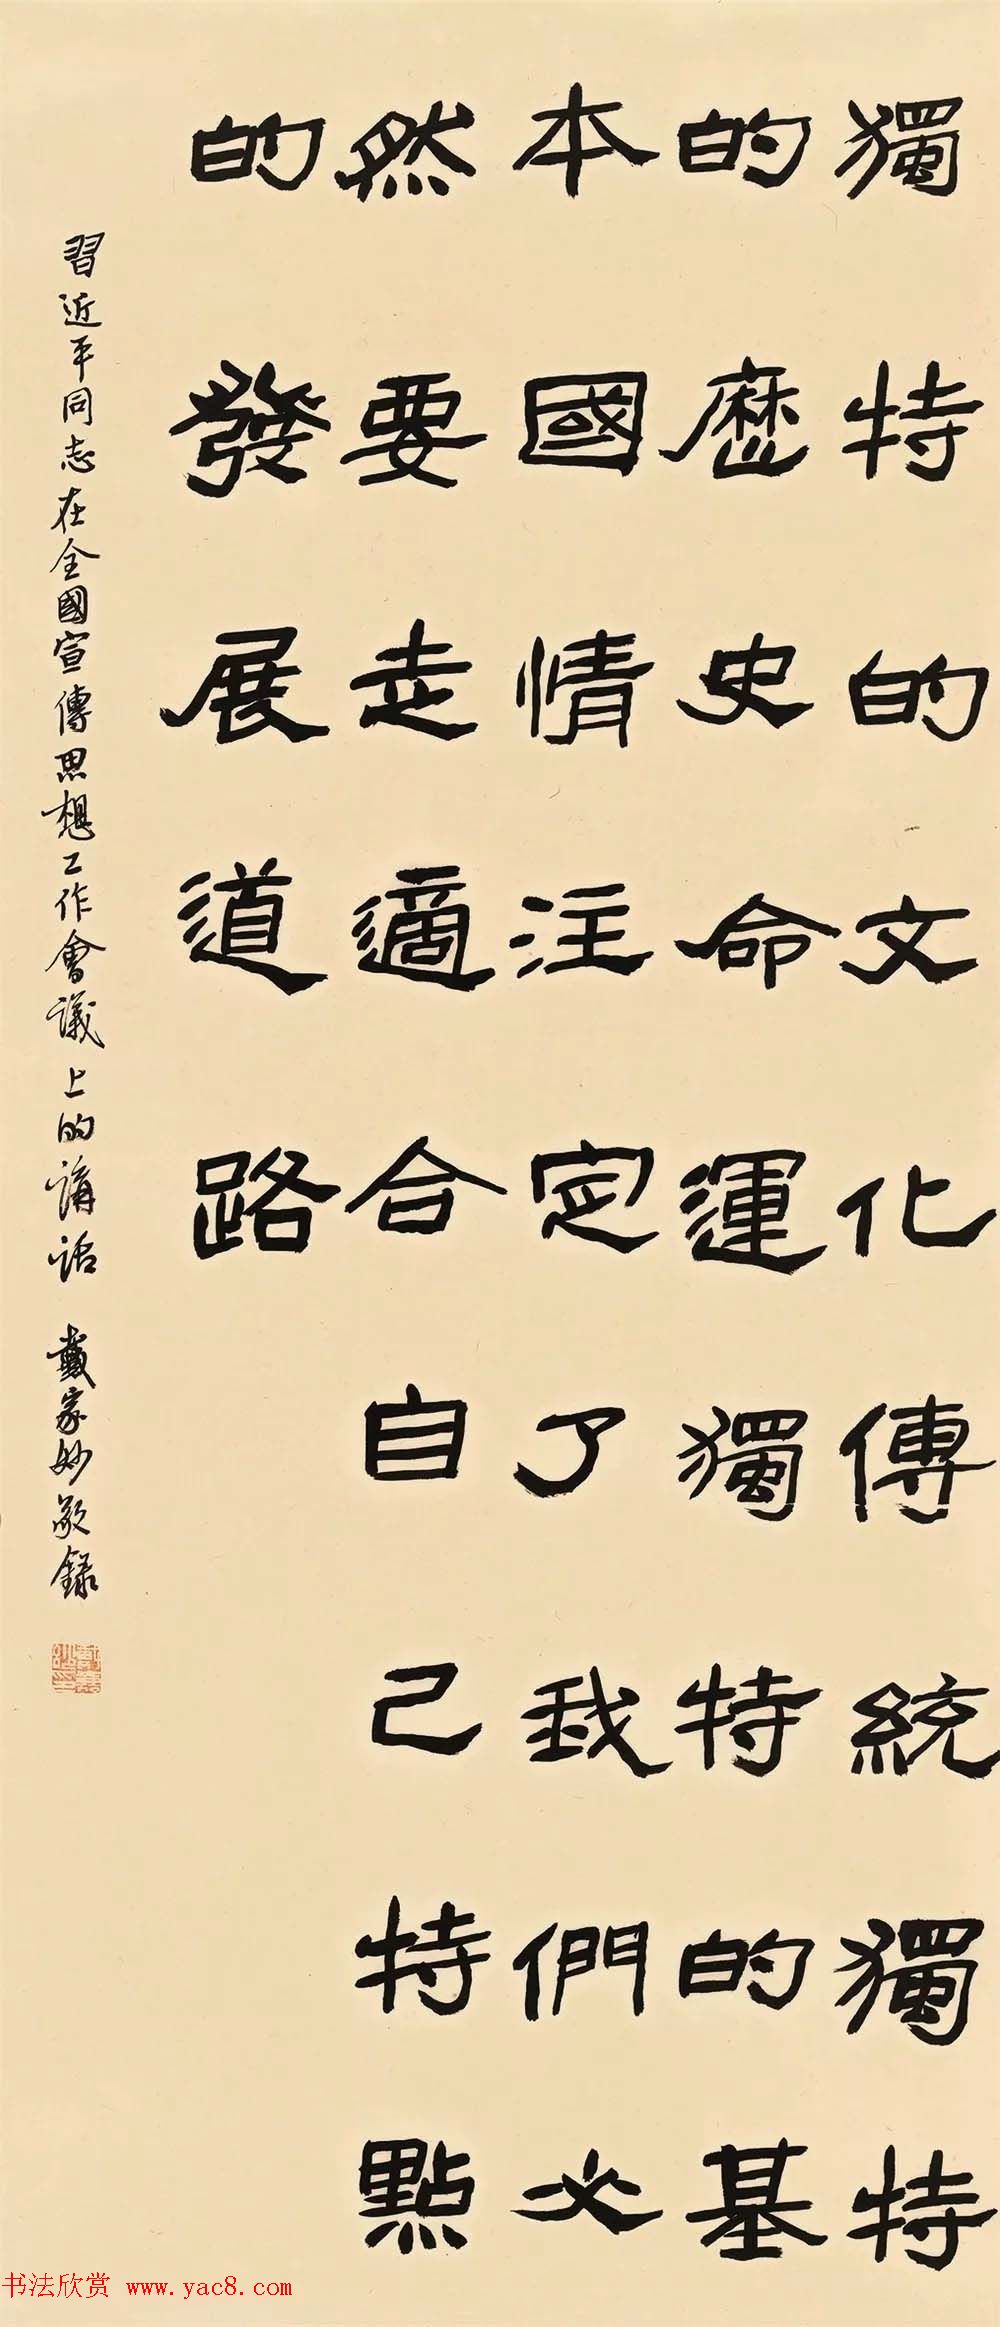 獨特的文化傳統獨特
的歷史命運獨特的基
本國情注定了我們必
然要走適合自己特點
的發展道路
習近平同志在全國宣傳思想工作會議上的講話 戴家妙敬錄
书法欣赏 www.yac8.com